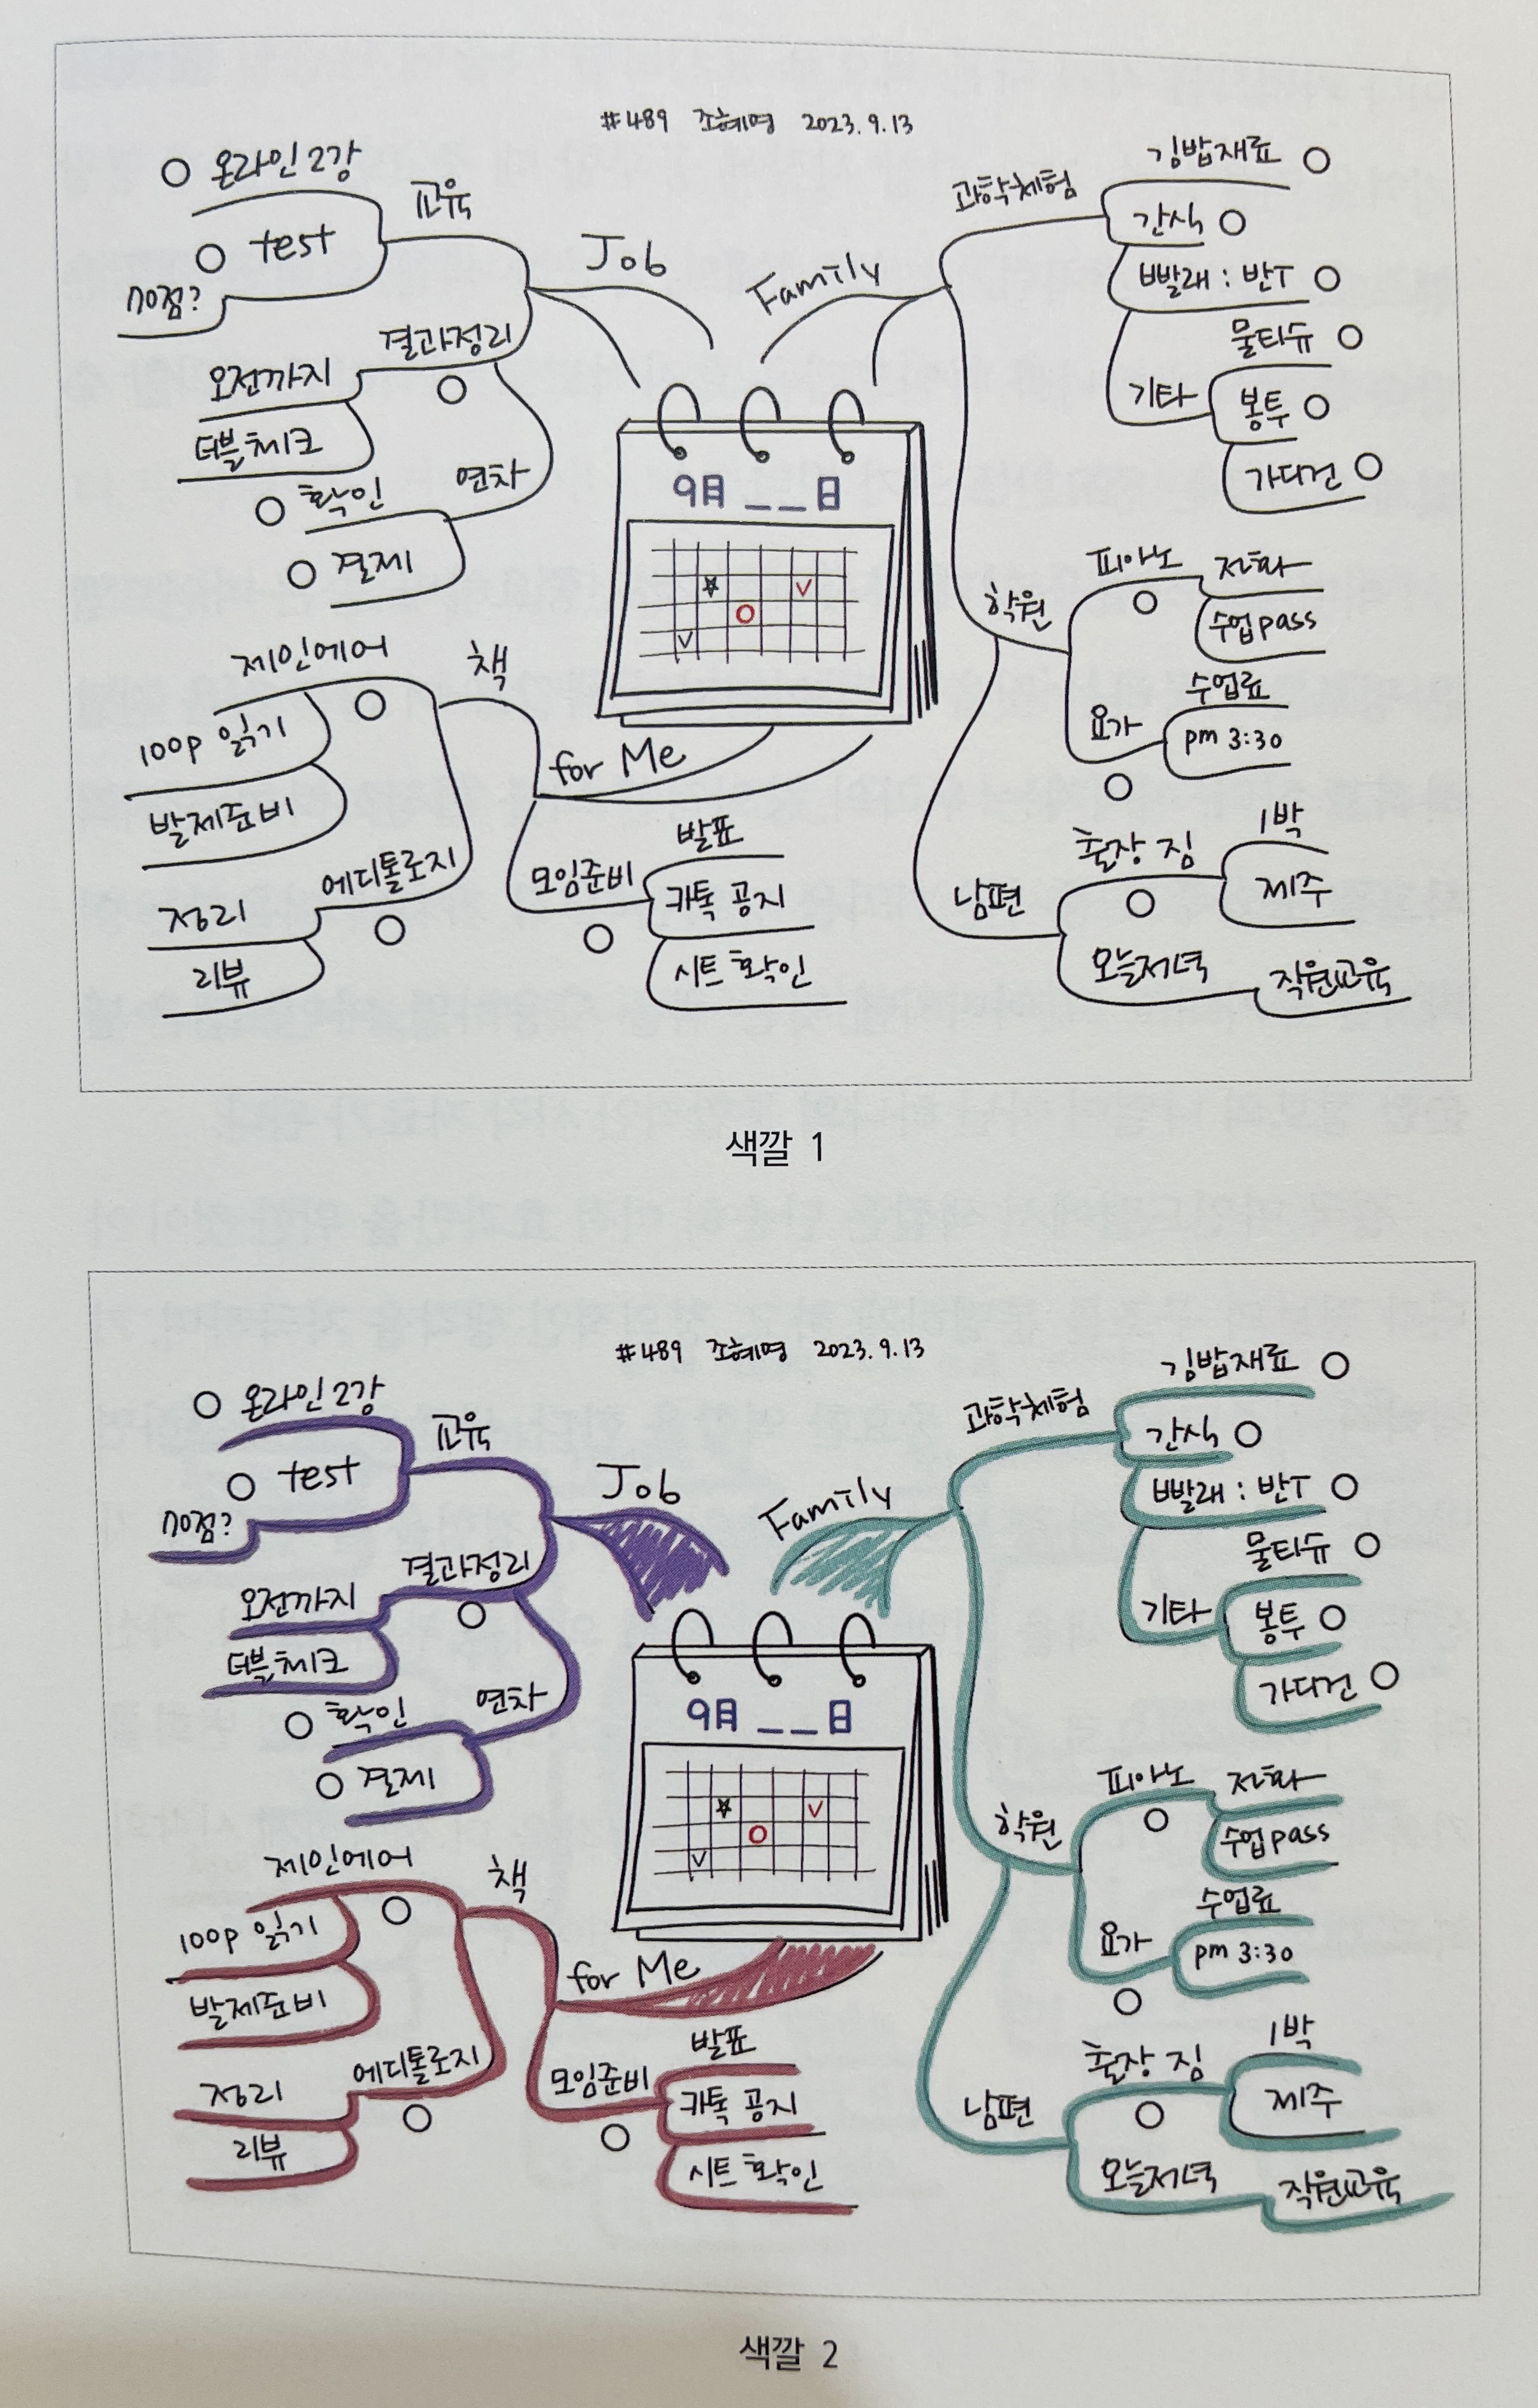 #489 조혜영 2023.9.13
Job
교육
온라인 2강
test
70점?
결과정리
오전까지
더블체크
연차
확인
결제
Family
과학체험
김밥재료
간식
빨래 : 반T
기타
물티슈
봉투
가디건
학원
피아노
전화
수업pass
요가
수업료
pm 3:30
남편
출장 짐
1박
제주
오늘저녁
직원교육
for Me
책
제인에어
100p 읽기
발제준비
에디톨로지
정리
리뷰
모임준비
발표
카톡 공지
시트 확인
9月 __日
색깔 1
#489 조혜영 2023.9.13
Job
교육
온라인 2강
test
70점?
결과정리
오전까지
더블체크
연차
확인
결제
Family
과학체험
김밥재료
간식
빨래 : 반T
기타
물티슈
봉투
가디건
학원
피아노
전화
수업pass
요가
수업료
pm 3:30
남편
출장 짐
1박
제주
오늘저녁
직원교육
for Me
책
제인에어
100p 읽기
발제준비
에디톨로지
정리
리뷰
모임준비
발표
카톡 공지
시트 확인
9月 __日
색깔 2